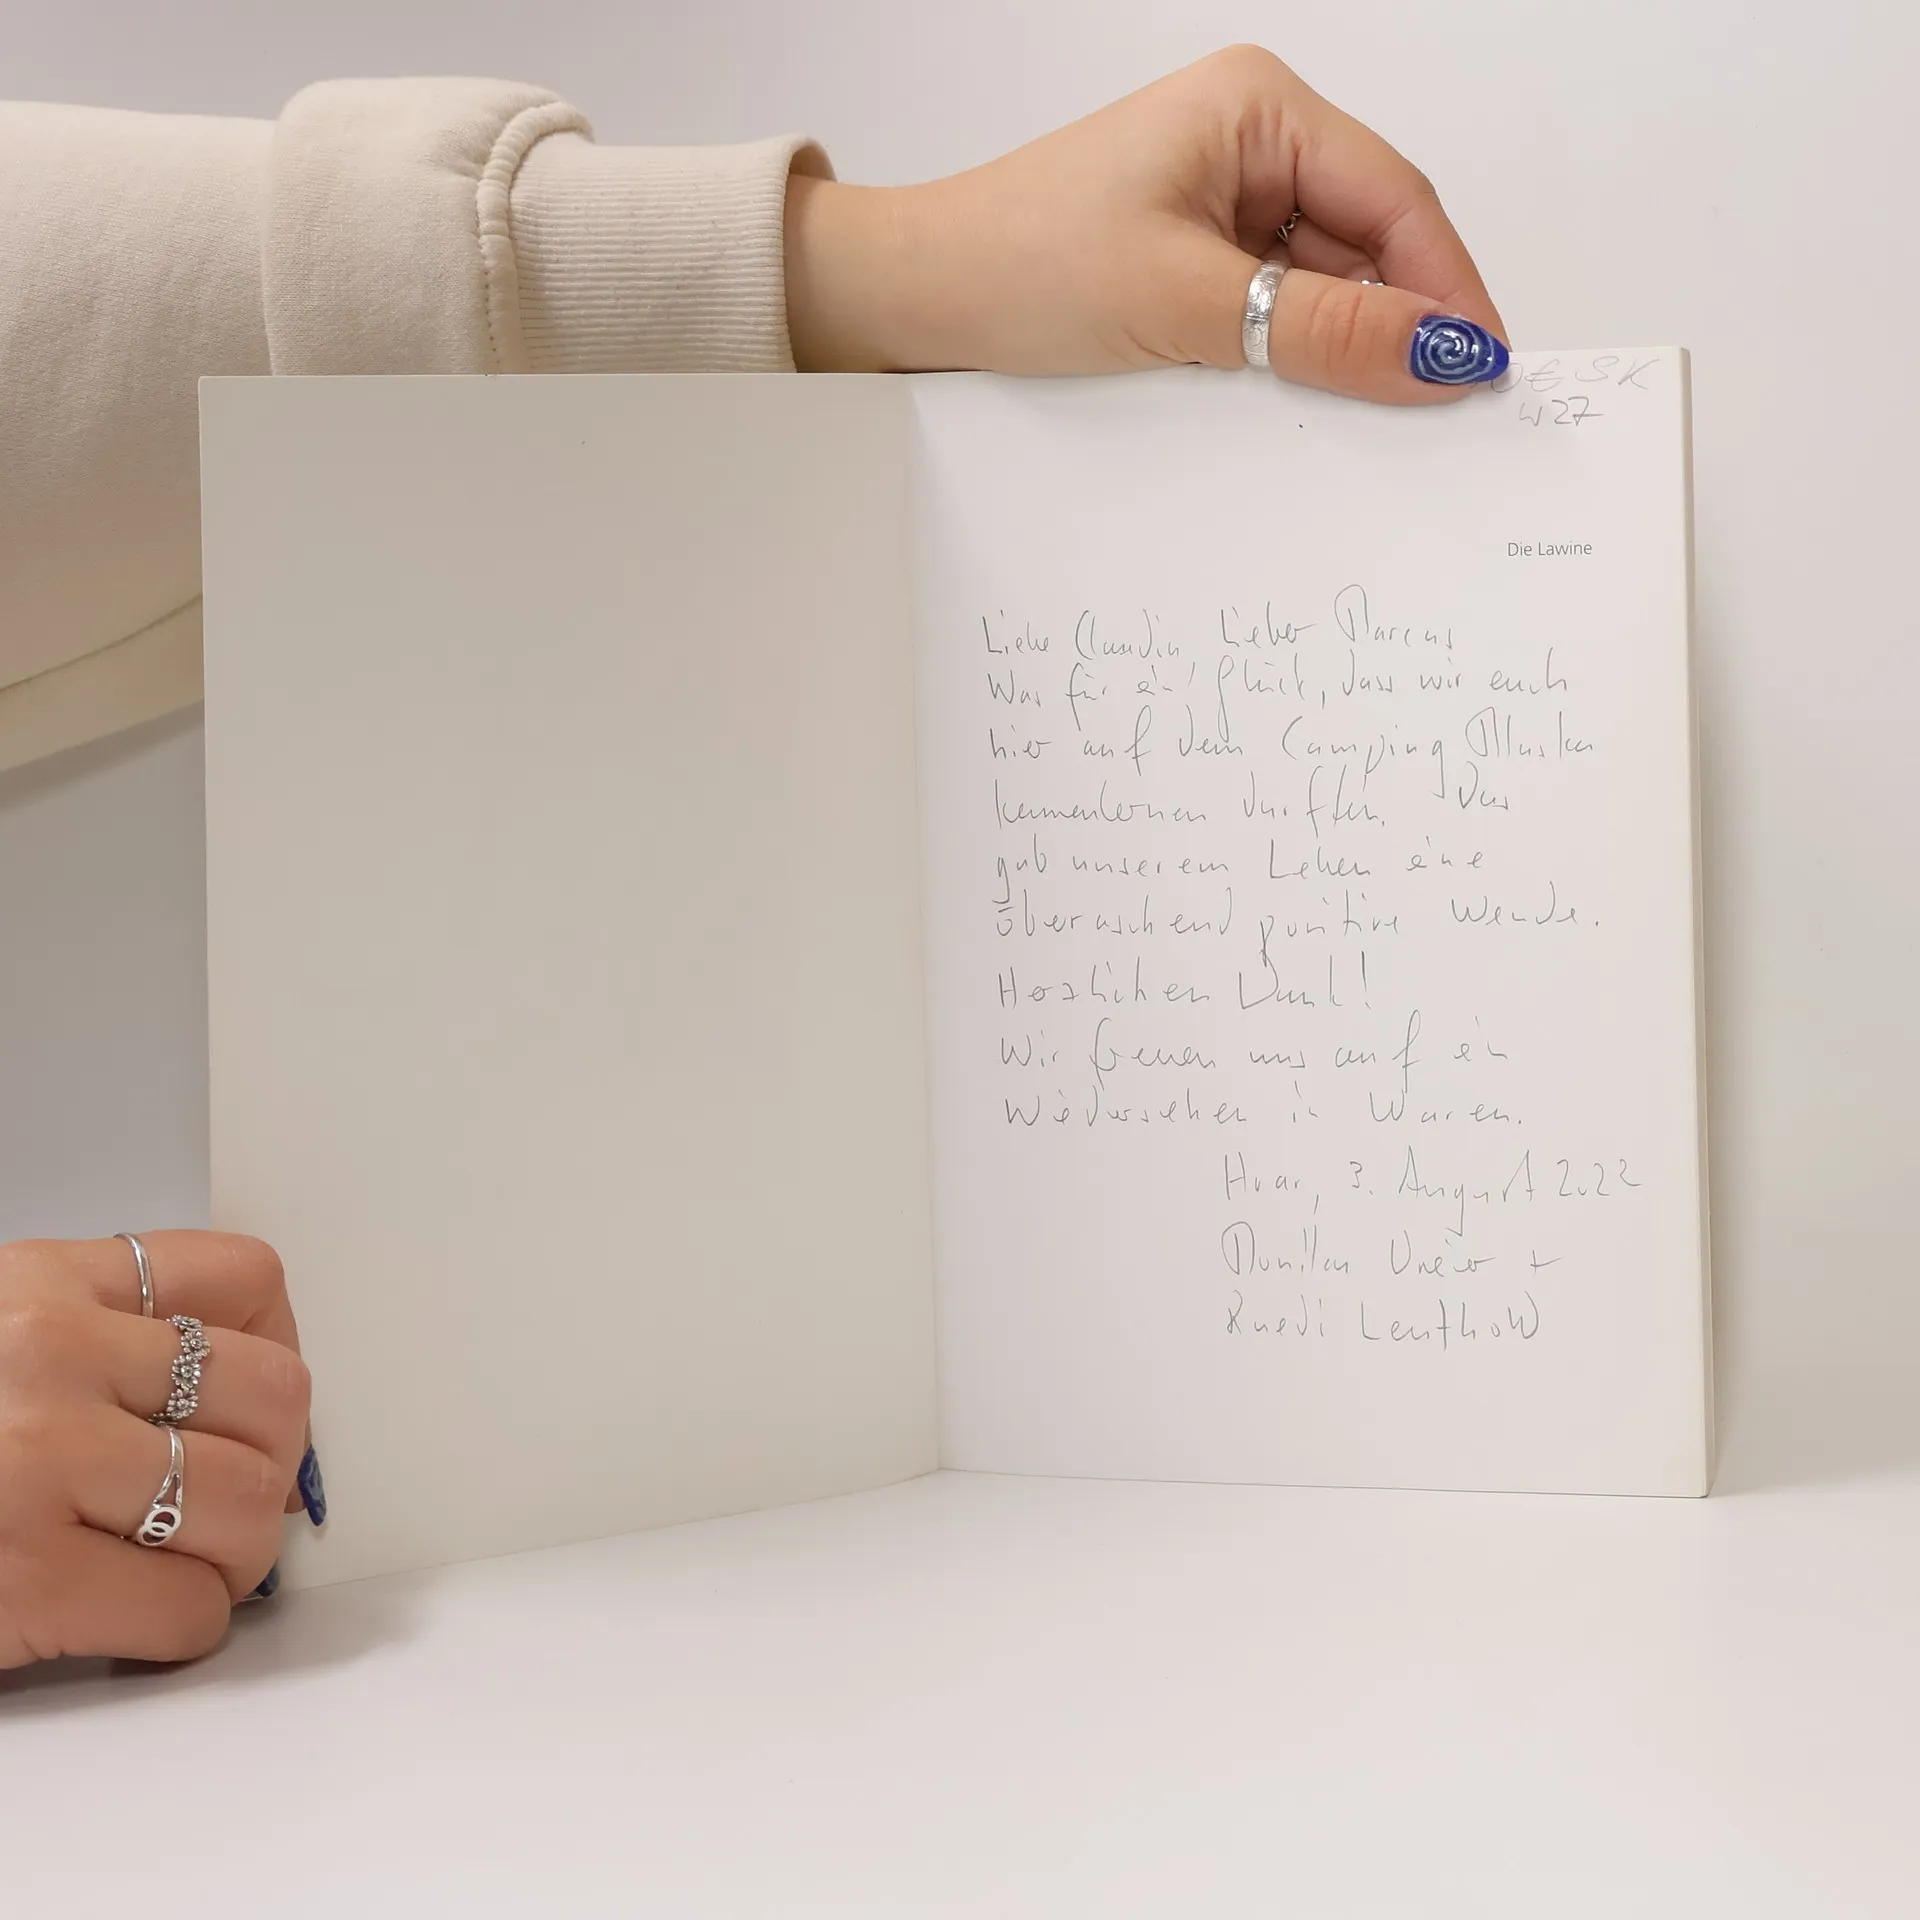 0€ SK
W27
Die Lawine
Liebe Claudia, Lieber Marcus
Was für ein Glück, dass wir euch
hier auf dem Camping
kennenlernen durften. Das
gab unserem Leben eine
überraschend positive Wende.
Herzlichen Dank!
Wir freuen uns auf ein
Wiedersehen in Waren.
Hvar, 3. August 2022
+
Ruedi Leuthold